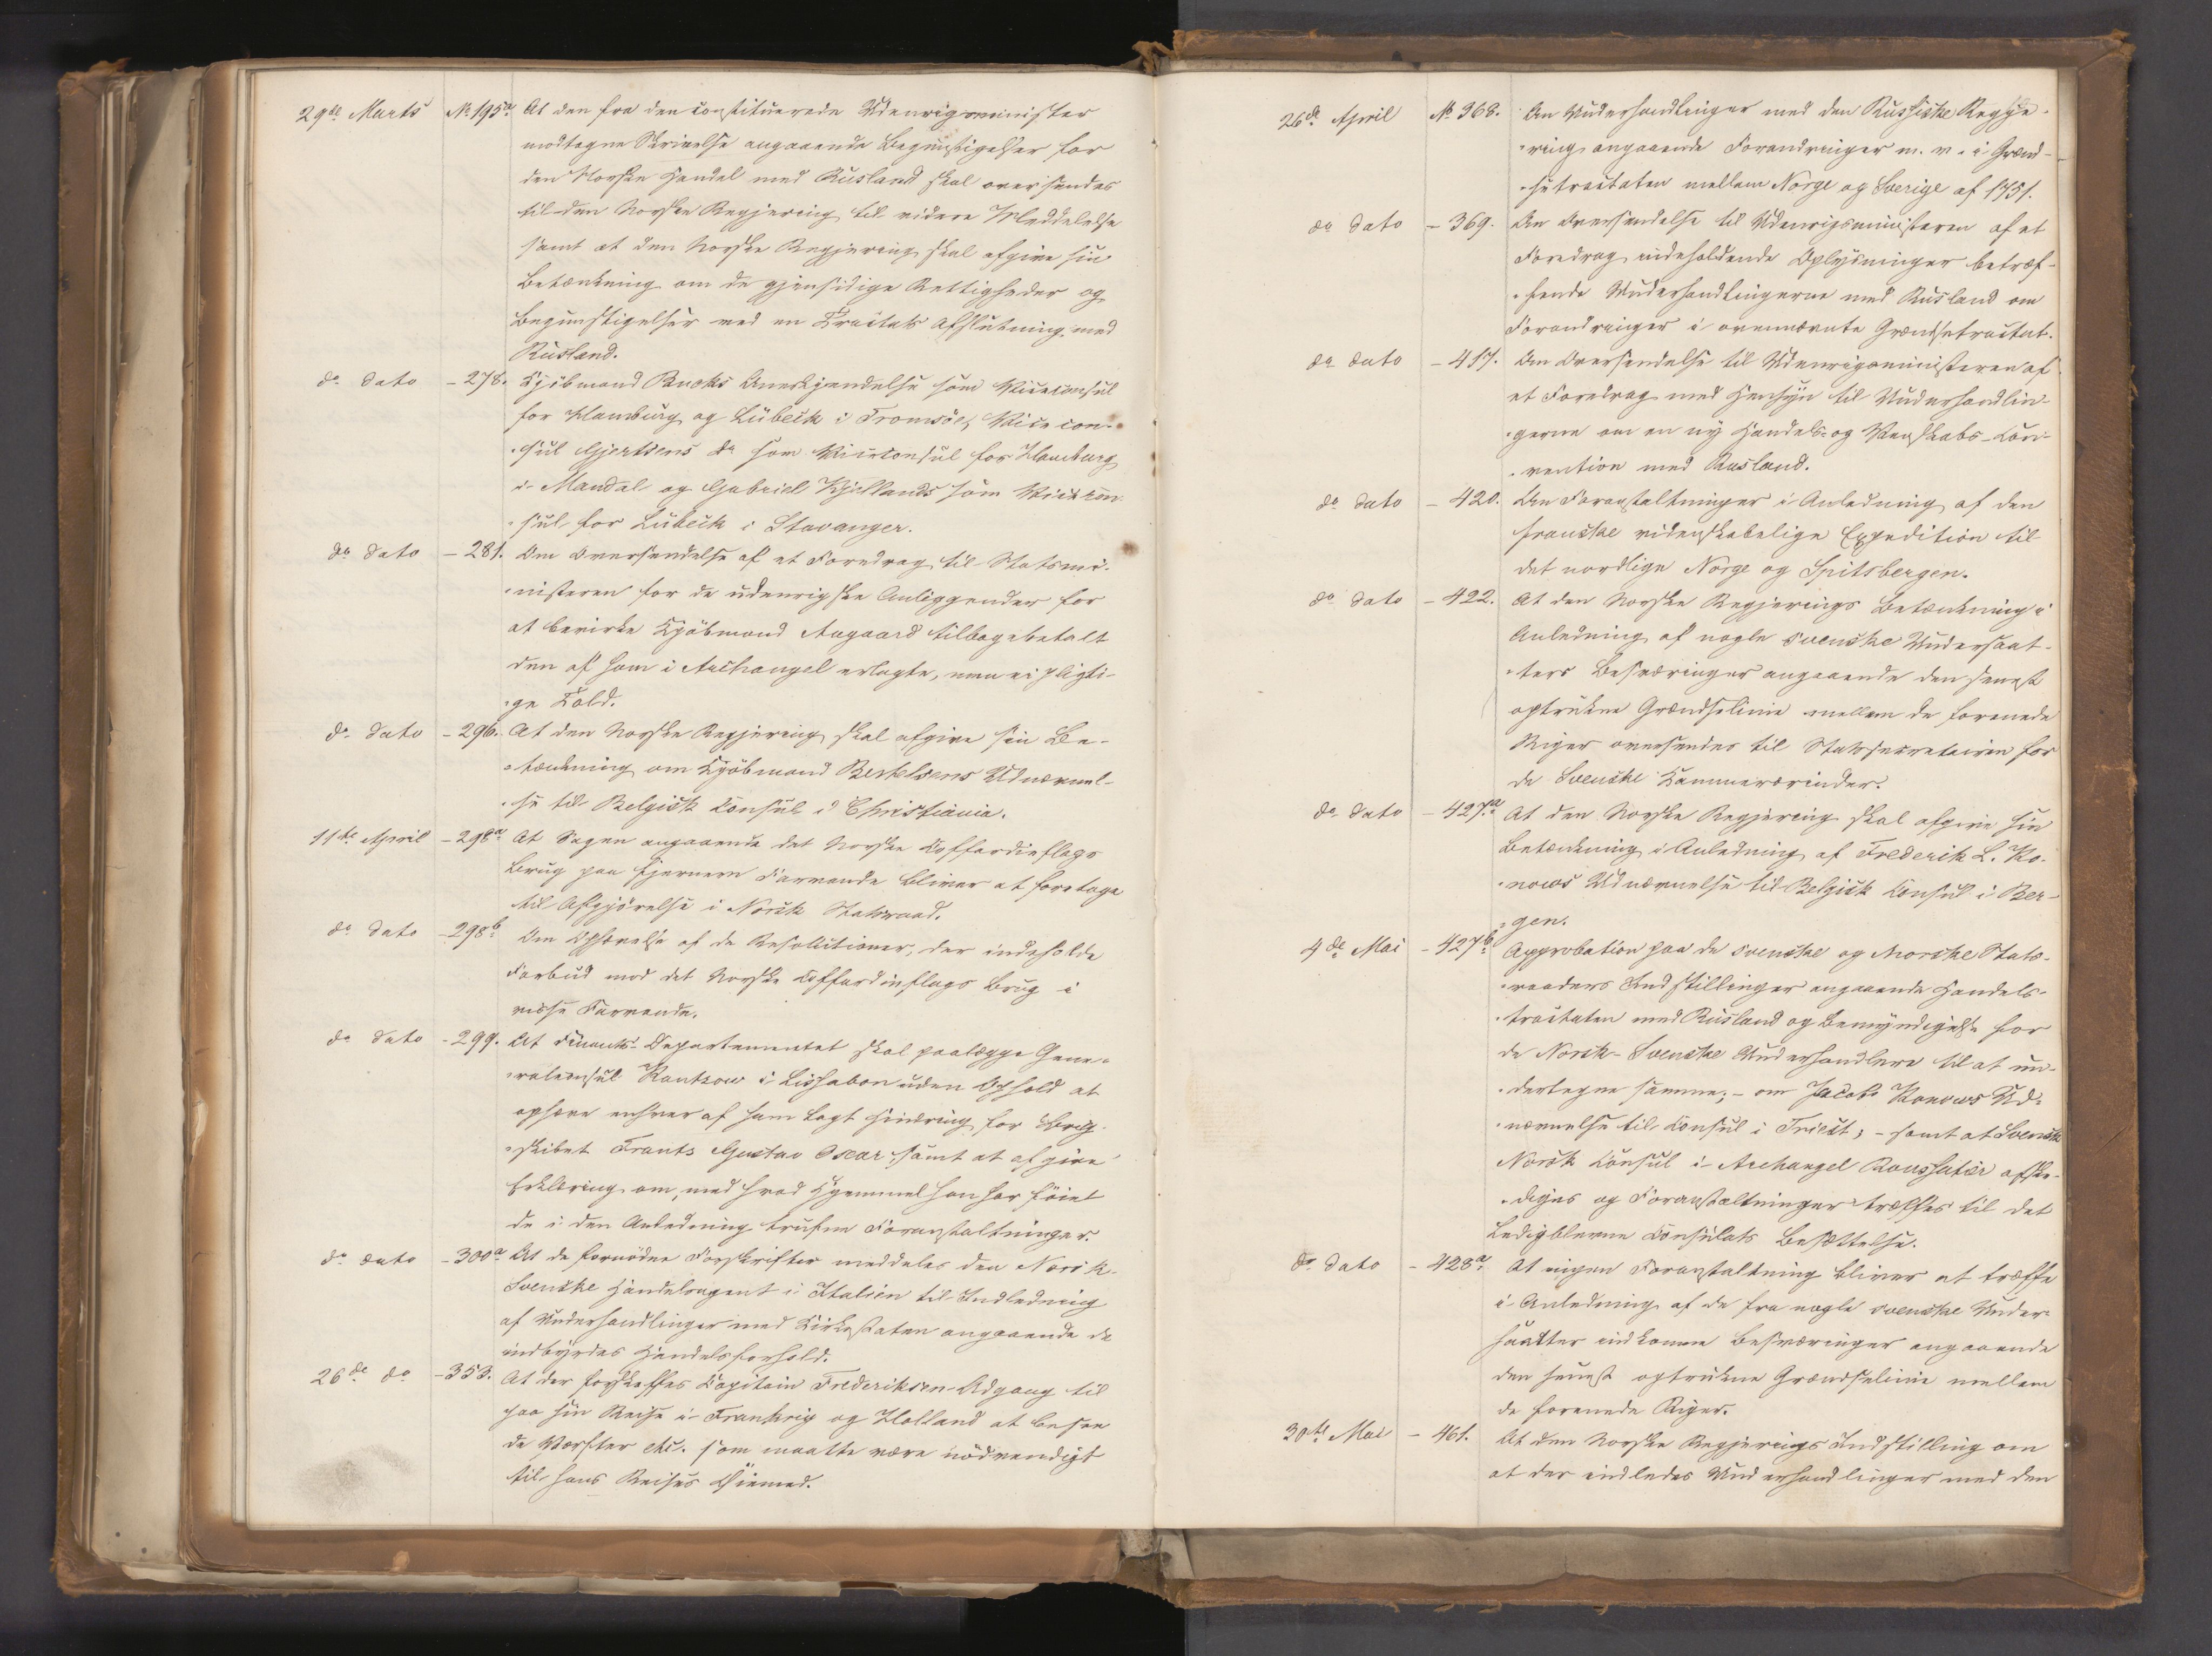 29de Marts No 195a At den fra den constituerede Udenrigsminister
modtagne Skrivelse angaaende Begunstigelser for
den Norske Handel med Rusland skal oversendes
til den Norske Regjering til videre Meddelelse
samt at den Norske Regjering skal afgive sin
Betænkning om de gjensidige Rettigheder og
Begunstigelser ved en Tractats Afslutning med
Rusland.
do Dato - 278. Kjöbmand Bucks Anerkjendelse som Viceconsul
for Hamburg og Lübeck i Tromsöe, Vicecon-
sul Gjertsens do som Viceconsul for Hamburg
i Mandal og Gabriel Kjellands som Vicekon-
sul for Lübeck i Stavanger.
do Dato - 281. Om Oversendelse af et Foredrag til Statsmi-
nisteren for de udenrigske Anliggender for
at bevirke Kjöbmand Aagaard tilbagebetalt
den af ham i Archangel erlagte, men ei pligti-
ge Told.
do Dato - 296. At den Norske Regjering skal afgive sin Be-
tænkning om Kjöbmand Bertelsens Udnævnel-
se til Belgisk Consul i Christiania.
11te April - 298a At Sagen angaaende det Norske Koffardieflags
Brug paa fjernere Farvande bliver at foretage
til Afgjörelse i Norsk Statsraad.
do Dato - 298b Om Ophævelse af de Resolutioner, der indeholde
Forbud mod det Norske Koffardieflags Brug i
visse Farvande.
do Dato - 299. At Finants-Departementet skal paalægge Gene-
ralconsul Kantzow i Lissabon uden Ophold at
ophæve enhver af ham lagt Hindring for Brig-
skibet Frants Gustav Oscar, samt at afgive
Erklæring om, med hvad Hjemmel han har föiet
de i den Anledning trufne Foranstaltninger.
do Dato - 300a At de fornödne Forskrifter meddeles den Norsk-
Svenske Handelsagent i Italien til Indledning
af Underhandlinger med Kirkestaten angaaende de
indbyrdes Handelsforhold.
26de do - 353. At der forskaffes Capitain Frederiksen Adgang til
paa sin Reise i Frankrig og Holland at besee
de Værfter etc. som maatte være nödvendigt
til hans Reises Öiemed.
26de April No 368. Om Underhandlinger med den Russiske Regje-
ring angaaende Forandringer m. v. i Grænd-
setractaten mellem Norge og Sverige af 1751.
do Dato - 369. Om Oversendelse til Udenrigsministeren af et
Foredrag indeholdende Oplysninger betræf-
fende Underhandlingerne med Rusland om
Forandringer i ovennævnte Grændsetractat.
do Dato - 417. Om Oversendelse til Udenrigsministeren af
et Foredrag med Hensyn til Underhandlin-
gerne om en ny Handels- og Venskabs-Con-
vention med Rusland.
do Dato - 420. Om Foranstaltninger i Anledning af den
franske videnskabelige Expedition til
det nordlige Norge og Spitsbergen.
do Dato - 422. At den Norske Regjerings Betænkning i
Anledning af nogle svenske Undersaat-
ters Besværinger angaaende den senest
optrukne Grændselinie mellem de forenede
Riger oversendes til Statssecretairen for
de Svenske Kammerærinder.
do Dato - 427a At den Norske Regjering skal afgive sin
Betænkning i Anledning af Frederik L. Ko-
nows Udnævnelse til Belgisk Consul i Ber-
gen.
4de Mai - 427b Approbation paa de svenske og Norske Stats-
raaders Indstillinger angaaende Handels-
tractaten med Rusland og Bemyndigelse for
de Norsk-Svenske Underhandlere til at un-
dertegne samme; - om Jacob Konows Ud-
nævnelse til Consul i Triest; - samt at Svensk
Norsk Consul i Archangel afske-
diges og Foranstaltninger træffes til det
ledigblevne Consulats Besættelse.
do Dato - 428a At ingen Foranstaltning bliver at træffe
i Anledning af de fra nogle svenske Under-
saatter indkomne Besværinger angaaende
den senest optrukne Grændselinie mellem
de forenede Riger.
30te Mai - 461. At den Norske Regjerings Indstilling om
at der indledes Underhandlinger med den